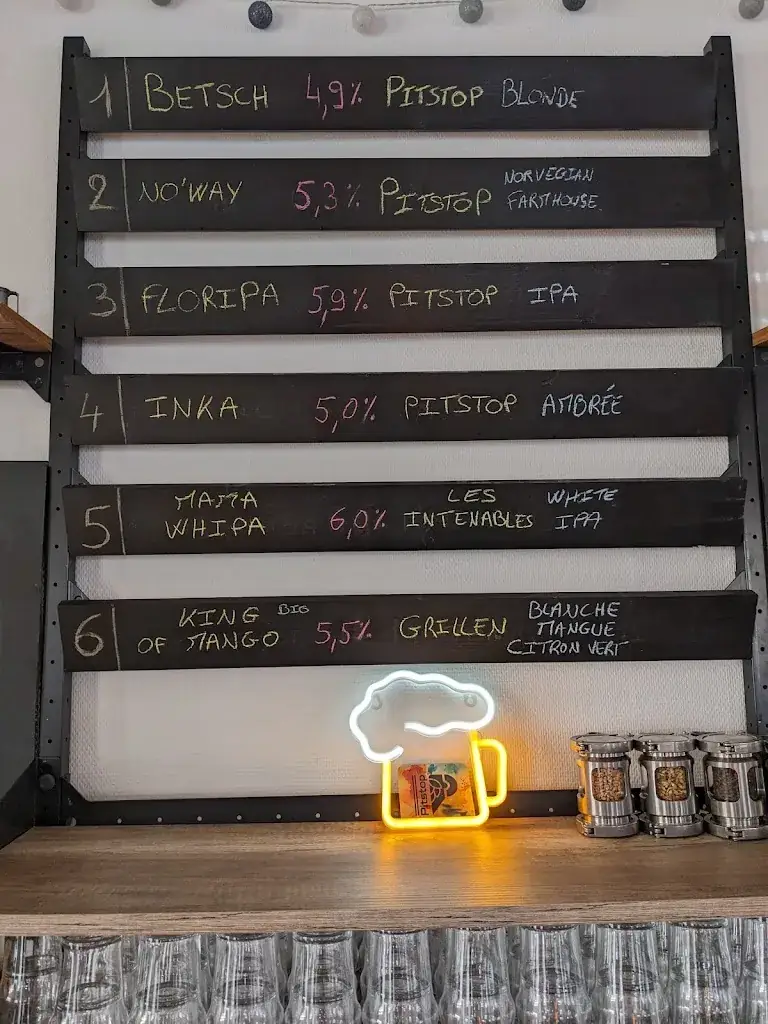 1 BETSCH 4,9% PITSTOP BLONDE
2 NO'WAY 5,3% PITSTOP NORVEGIAN FARMHOUSE
3 FLORIPA 5,9% PITSTOP IPA
4 INKA 5,0% PITSTOP AMBRÉE
5 MAMA WHIPA 6,0% LES INTENABLES WHITE IPA
6 KING BIG OF MANGO 5,5% GRILLEN BLANCHE MANGUE CITRON VERT
Pitstop